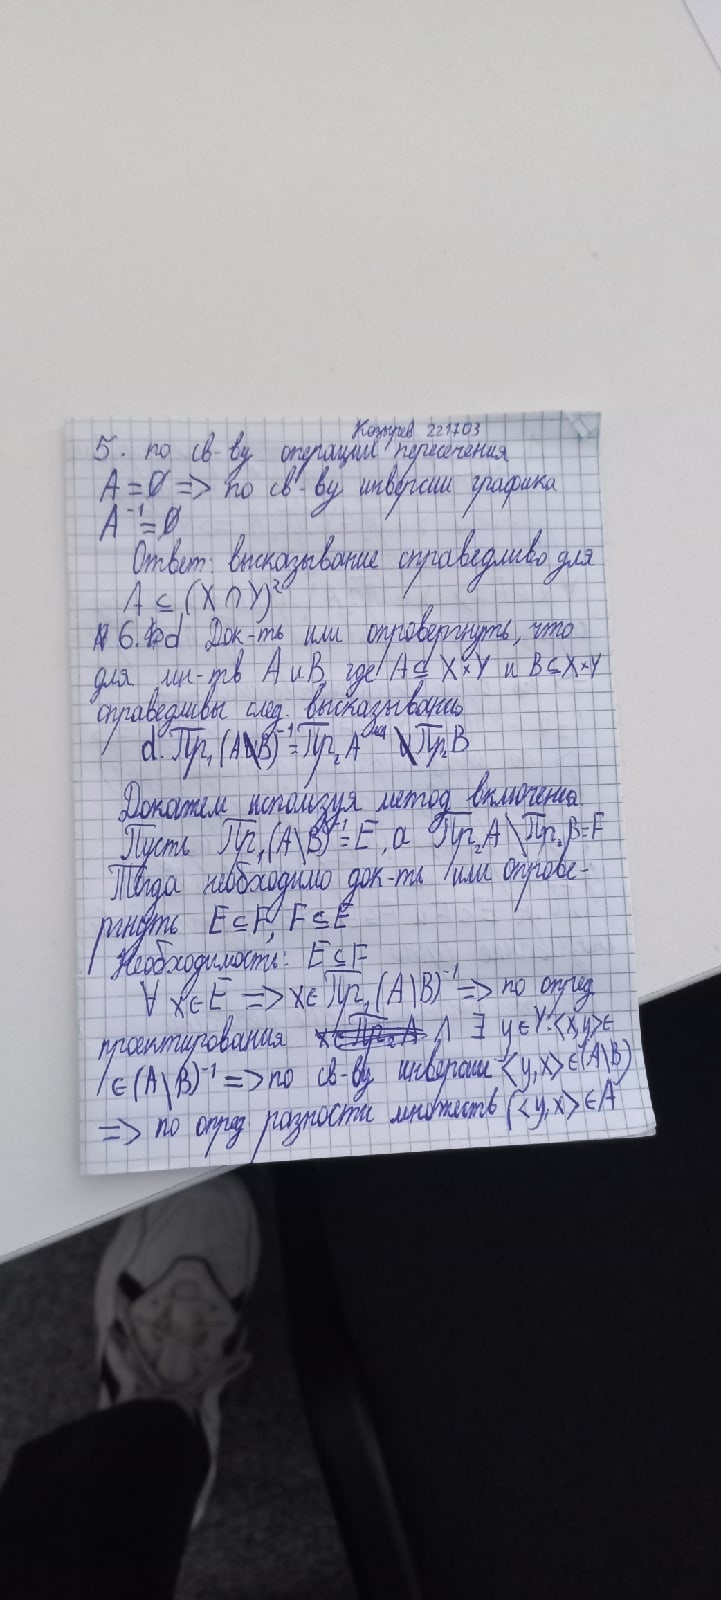 Кожуев 221703
5. по св-ву операции пересечения
A = ∅ => по св-ву инверсии графика
A⁻¹ = ∅
Ответ: высказывание справедливо для
A ⊆ (X ∩ Y)²
6. d Док-ть или опровергнуть, что
для мн-тв A и B, где A ⊆ X×Y и B ⊆ X×Y
справедливы след. высказывания
d. Пр₁ (A\B)⁻¹ = Пр₂ A \ Пр₂ B
Докажем используя метод включения
Пусть Пр₁ (A\B)⁻¹ = E, а Пр₂ A \ Пр₂ B = F
Тогда необходимо док-ть или опрове-
ргнуть E ⊆ F, F ⊆ E
Необходимость: E ⊆ F
∀ x ∈ E => x ∈ Пр₁ (A\B)⁻¹ => по опред
проектирования x ∈ Пр₂ A ∧ ∃ y ∈ Y: <x,y> ∈
∈ (A\B)⁻¹ => по св-ву инверсии <y,x> ∈ (A\B)
=> по опред разности множеств (<y,x> ∈ A